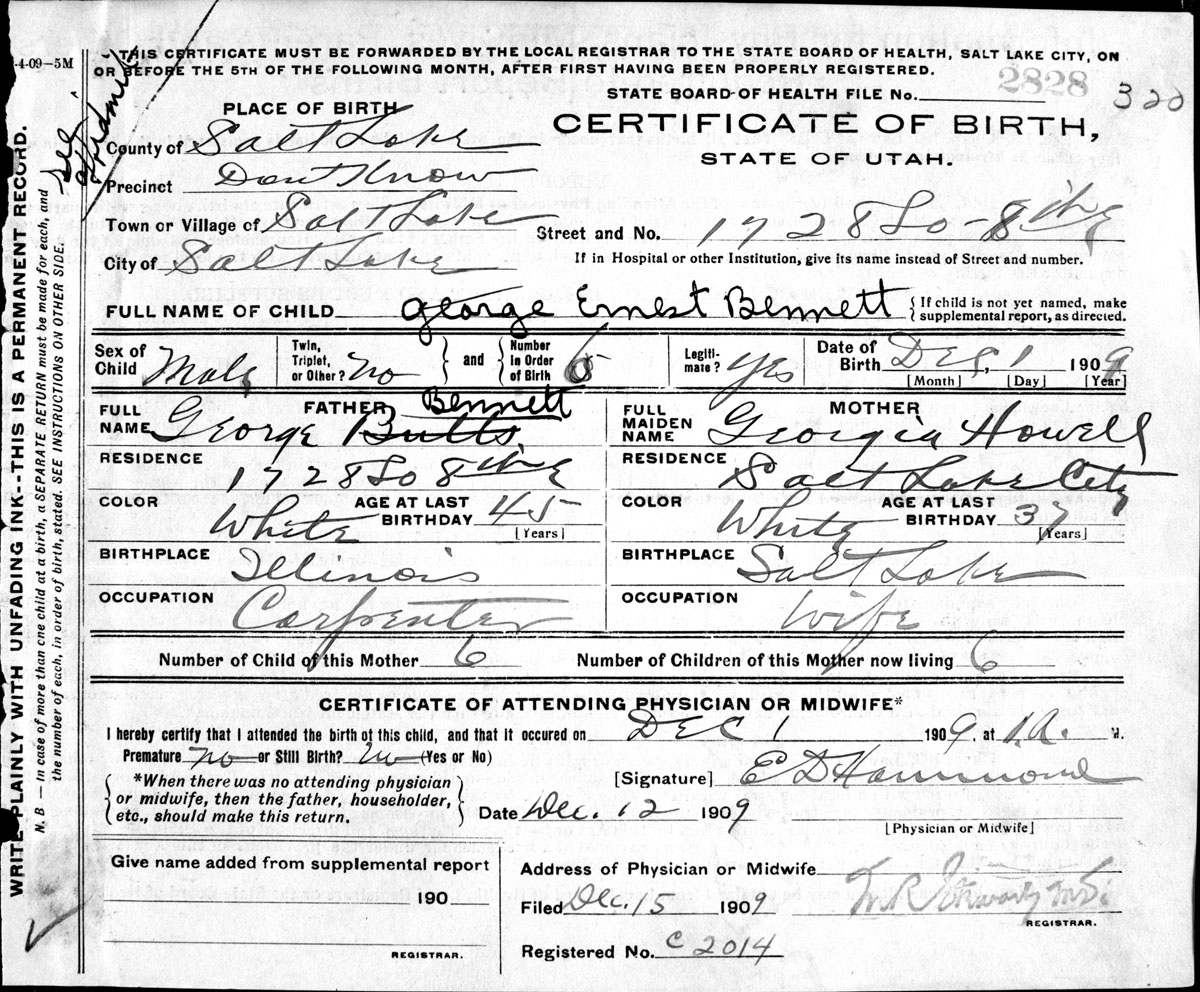 4-09—5M
THIS CERTIFICATE MUST BE FORWARDED BY THE LOCAL REGISTRAR TO THE STATE BOARD OF HEALTH, SALT LAKE CITY, ON
OR BEFORE THE 5TH OF THE FOLLOWING MONTH, AFTER FIRST HAVING BEEN PROPERLY REGISTERED.
STATE BOARD OF HEALTH FILE No. 2828
320
See
PLACE OF BIRTH
CERTIFICATE OF BIRTH,
STATE OF UTAH.
County of Salt Lake
Precinct Dont Know
Town or Village of Salt Lake
Street and No. 1728 So - 8th E
City of Salt Lake
If in Hospital or other Institution, give its name instead of Street and number.
FULL NAME OF CHILD George Ernest Bennett { If child is not yet named, make
supplemental report, as directed.
Sex of Child Male
Twin, Triplet, or Other? no
and
Number in Order of Birth 6
Legitimate? yes
Date of Birth Dec, 1 1909
[Month] [Day] [Year]
FATHER
FULL NAME George Butts. Bennett
RESIDENCE 1728 So 8th E
COLOR White
AGE AT LAST BIRTHDAY 45
[Years]
BIRTHPLACE Illinois
OCCUPATION Carpenter
MOTHER
FULL MAIDEN NAME Georgia Howell
RESIDENCE Salt Lake City
COLOR White
AGE AT LAST BIRTHDAY 37
[Years]
BIRTHPLACE Salt Lake
OCCUPATION Wife
Number of Child of this Mother 6
Number of Children of this Mother now living 6
CERTIFICATE OF ATTENDING PHYSICIAN OR MIDWIFE*
I hereby certify that I attended the birth of this child, and that it occured on DEC 1 1909. at 1.A. M.
Premature no or Still Birth? no (Yes or No)
*When there was no attending physician
or midwife, then the father, householder,
etc., should make this return.
[Signature] E D Hammond
Date Dec. 12 1909
[Physician or Midwife]
Give name added from supplemental report
190
REGISTRAR.
Address of Physician or Midwife
Filed Dec. 15 1909
REGISTRAR.
Registered No. C 2014
WRITE PLAINLY WITH UNFADING INK--THIS IS A PERMANENT RECORD.
N. B — In case of more than one child at a birth, a SEPARATE RETURN must be made for each, and
the number of each, in order of birth, stated. SEE INSTRUCTIONS ON OTHER SIDE.